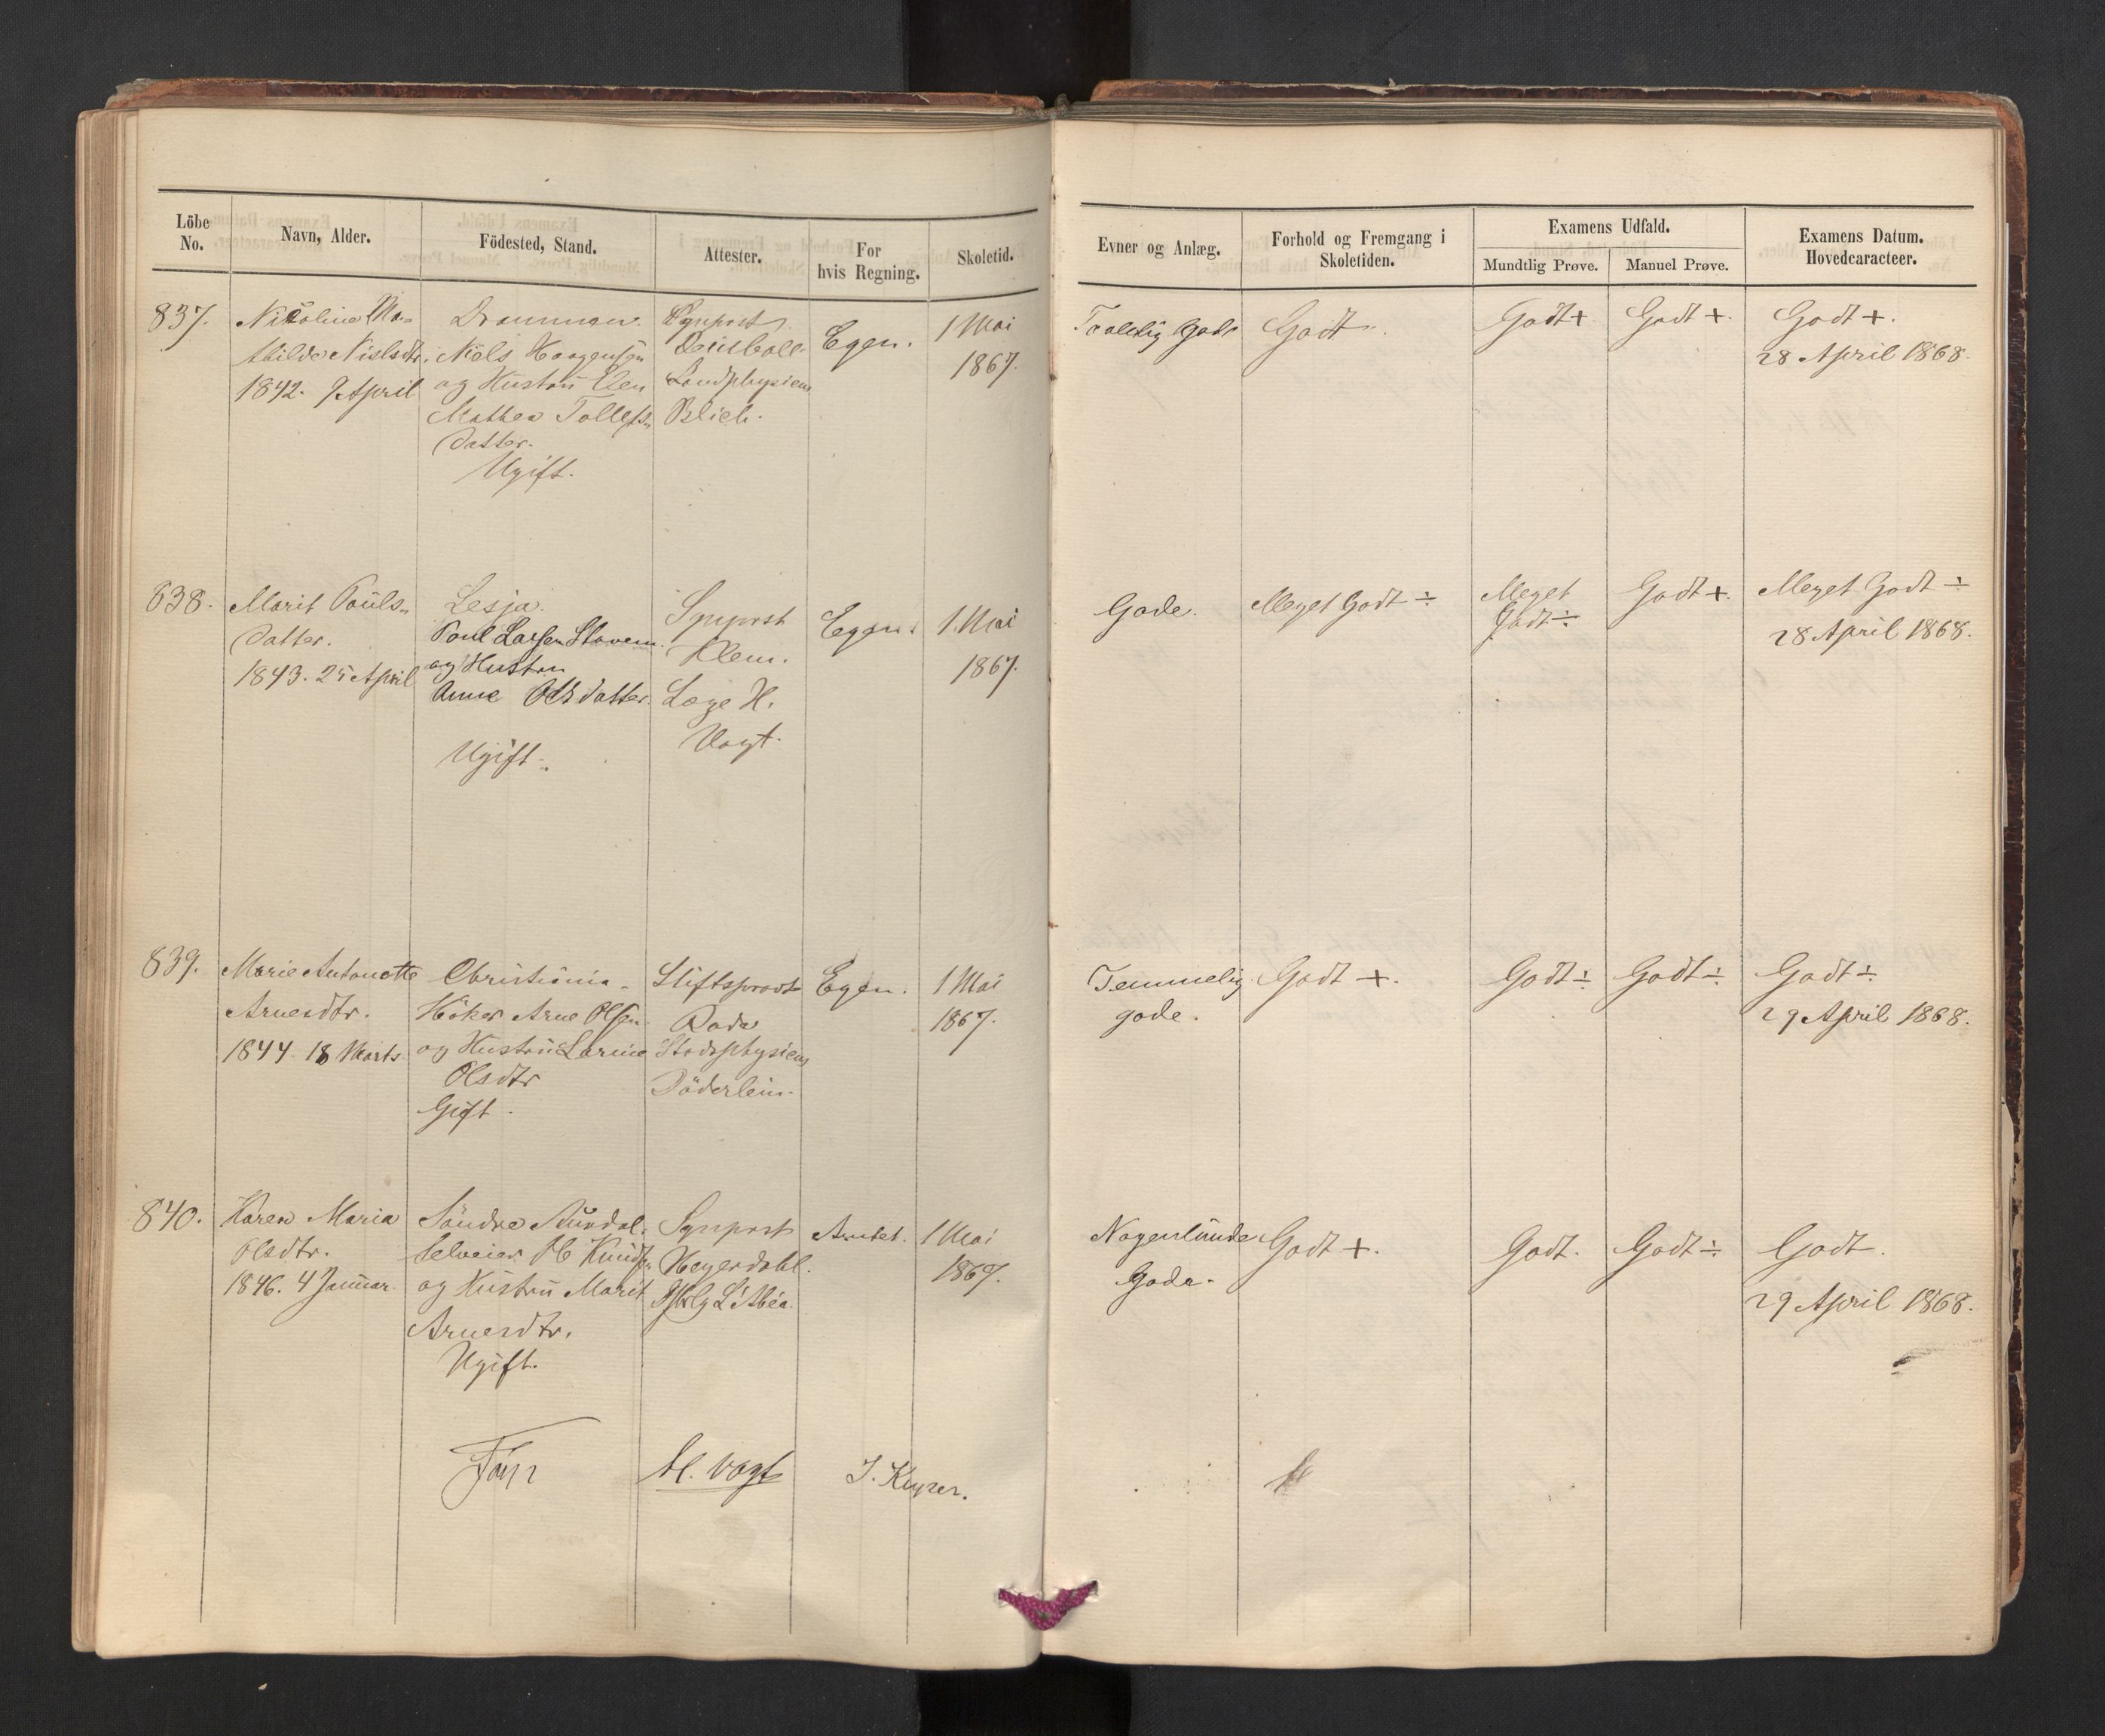 Löbe No.
Navn, Alder.
Födested, Stand.
Attester.
For hvis Regning.
Skoletid.
Evner og Anlæg.
Forhold og Fremgang i Skoletiden.
Examens Udfald.
Mundtlig Prøve.
Manuel Prøve.
Examens Datum.
Hovedcaracteer.
837.
Nicoline Ma-
thilde Nielsdtr.
1842. 9 April
Drammen.
Niels Haagensen
og Hustru Elen
Mathea Tollefs-
datter.
Ugift.
Sgnprost
Landphysicus
Blich.
Egen.
1 Mai
1867.
Taalelig Gode
Godt.
Godt +
Godt +.
Godt +.
28 April 1868.
838.
Marit Pouls-
datter.
1843. 25 April
Lesja.
Poul Larsen Stavem.
og Hustru
Anne Olsdatter.
Ugift.
Sgnprost
Klem.
Læge H.
Vogt.
Egen.
1 Mai
1867.
Gode.
Meget Godt ÷
Meget
Godt ÷
Godt +.
Meget Godt ÷
28 April 1868.
839.
Marie Antonette
Arnesdtr.
1844. 18 Marts
Christiania.
Höker Arne Olsen
og Hustru Larine
Olsdtr
Gift.
Stiftsprovst
Rode
Stadsphysicus
Döderlein.
Egen.
1 Mai
1867.
Temmelig
gode.
Godt +.
Godt ÷
Godt ÷
Godt ÷
29 April 1868.
840.
Karen Maria
Olsdtr.
1846. 4 Januar.
Söndre Aurdal.
Selveier Ole Knudsn
og Hustru Marit
Arnesdtr.
Ugift.
Sgnprost
Heyerdahl.
L'Abée.
Amtet.
1 Mai
1867.
Nogenlunde
Gode.
Godt +.
Godt.
Godt ÷
Godt.
29 April 1868.
Faye
H. Vogt
J. Keyser.